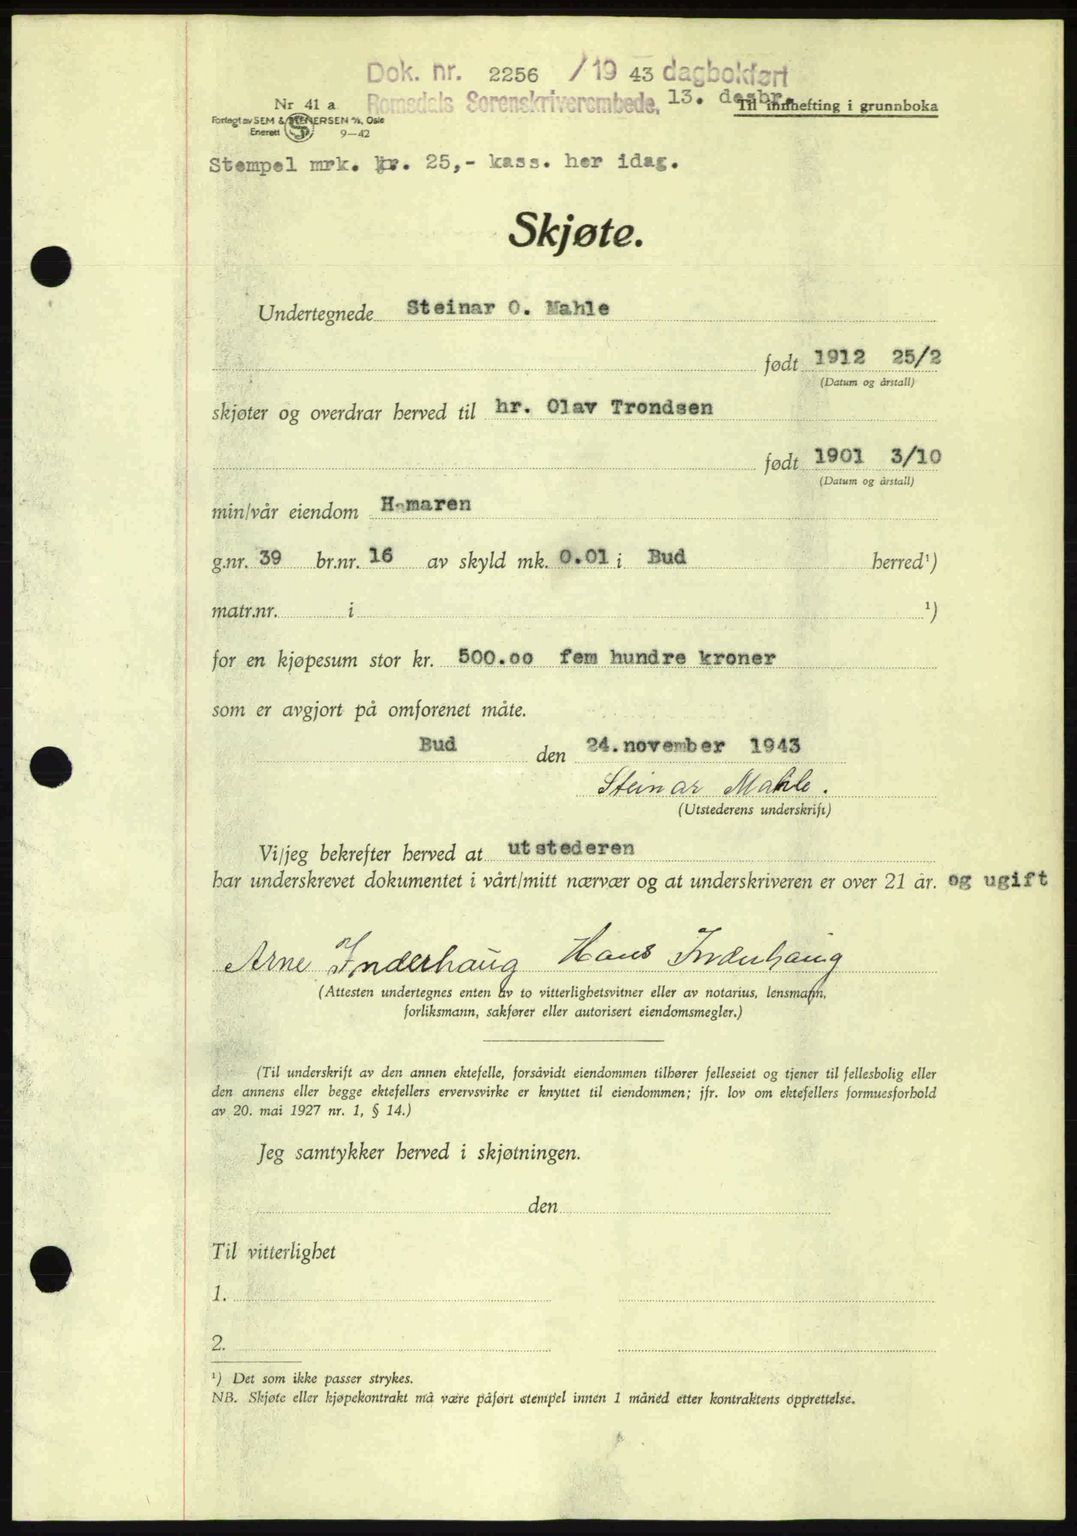 Dok. nr. 2256 /19 43 dagbokført
Romsdals Sorenskriverembede, 13. desbr.
Nr 41 a
Til innhefting i grunnboka
Forlagt av SEM & STENERSEN A/S, Oslo
Enerett 9—42
Stempel mrk. kr. 25,- kass. her idag.
Skjøte.
Undertegnede Steinar O. Mahle
født 1912 25/2
(Datum og årstall)
skjøter og overdrar herved til hr. Olav Trondsen
født 1901 3/10
(Datum og årstall)
min/vår eiendom Hamaren
g.nr. 39 br.nr. 16 av skyld mk. 0.01 i Bud herred¹)
matr.nr. i ¹)
for en kjøpesum stor kr. 500.00 fem hundre kroner
som er avgjort på omforenet måte.
Bud den 24.november 1943
Steinar Mahle.
(Utstederens underskrift)
Vi/jeg bekrefter herved at utstederen
har underskrevet dokumentet i vårt/mitt nærvær og at underskriveren er over 21 år. og ugift
Arne Inderhaug Hans Inderhaug
(Attesten undertegnes enten av to vitterlighetsvitner eller av notarius, lensmann,
forliksmann, sakfører eller autorisert eiendomsmegler.)
(Til underskrift av den annen ektefelle, forsåvidt eiendommen tilhører felleseiet og tjener til fellesbolig eller
den annens eller begge ektefellers ervervsvirke er knyttet til eiendommen; jfr. lov om ektefellers formuesforhold
av 20. mai 1927 nr. 1, § 14.)
Jeg samtykker herved i skjøtningen.
den
Til vitterlighet
1.
2.
¹) Det som ikke passer strykes.
NB. Skjøte eller kjøpekontrakt må være påført stempel innen 1 måned etter kontraktens opprettelse.